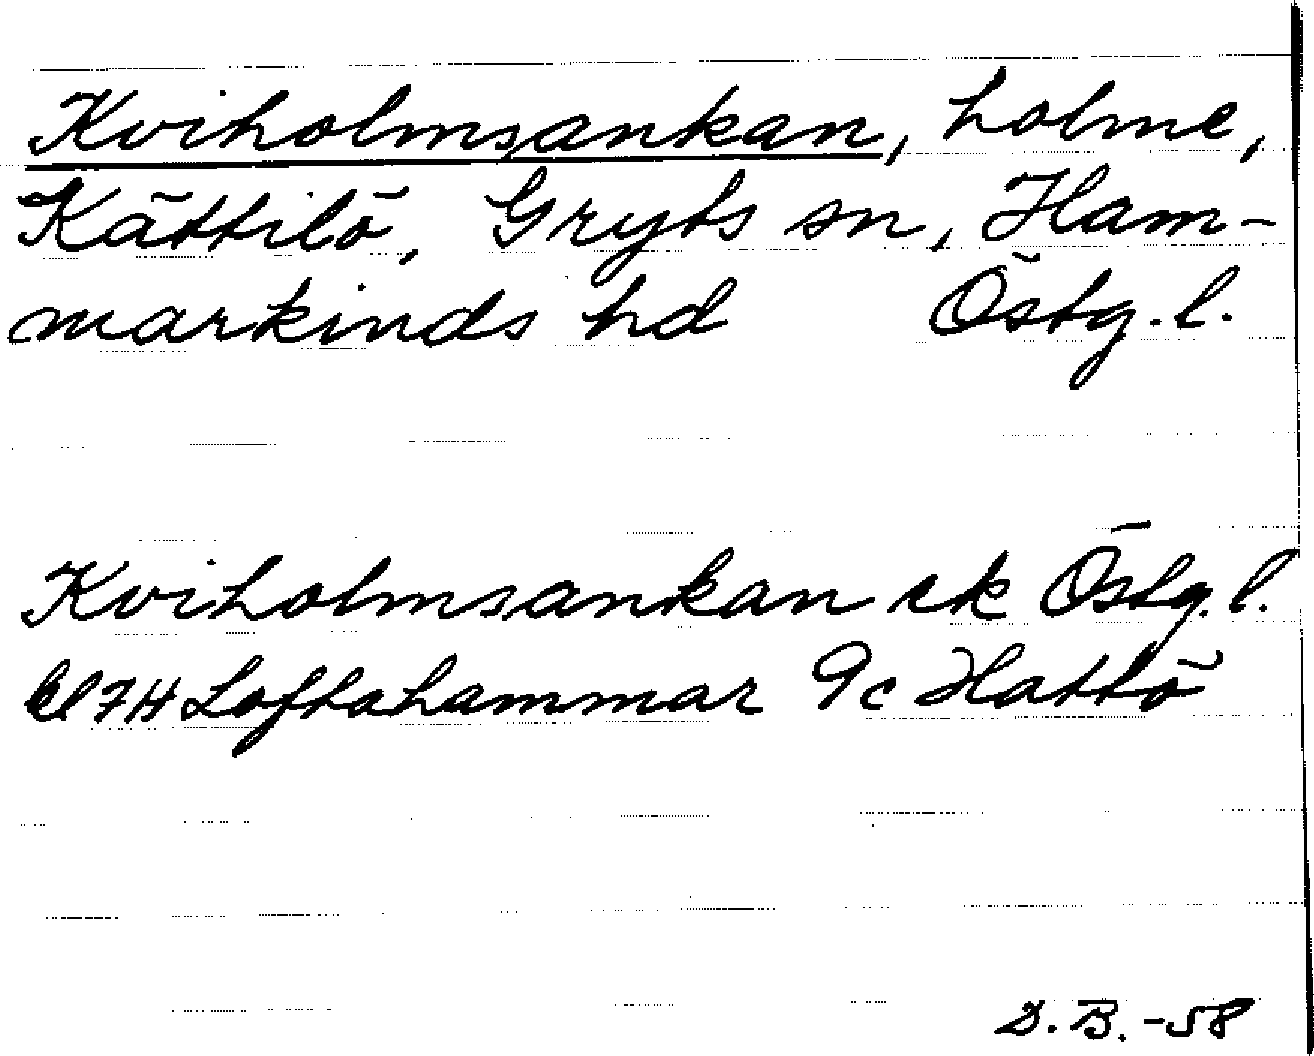 Kviholmsankan, holme,
Kättilö, Gryts sn, Ham-
markinds hd Östg. l.
Kviholmsankan ek Östg. l.
bl 7H Loftahammar 9c Hattö
D. B. -58